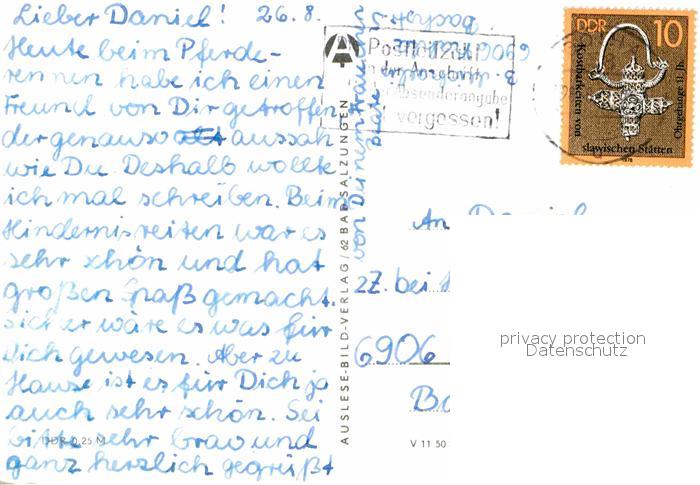 Lieber Daniel! 26. 8.
Heute beim Pferde-
rennen habe ich einen
Freund von Dir getroffen
der genauso aussah
wie Du. Deshalb wollte
ich mal schreiben. Beim
Hindernisreiten war es
sehr schön und hat
großen Spaß gemacht.
sicher wäre es was für
Dich gewesen. Aber zu
Hause ist es für Dich ja
auch sehr schön. Sei
bitte sehr brav und
ganz herzlich gegrüßt
von Deinem
DDR 0,25 M
AUSLESE-BILD-VERLAG / 62 BAD SALZUNGEN
V 11 50
Postleitzahl
in der Anschrift
Absenderangabe
vergessen!
DDR 10
Kostbarkeiten von
slawischen Stätten
Ohrgehänge 11. Jh.
1978
An Daniel
zZ. bei
6906
privacy protection
Datenschutz